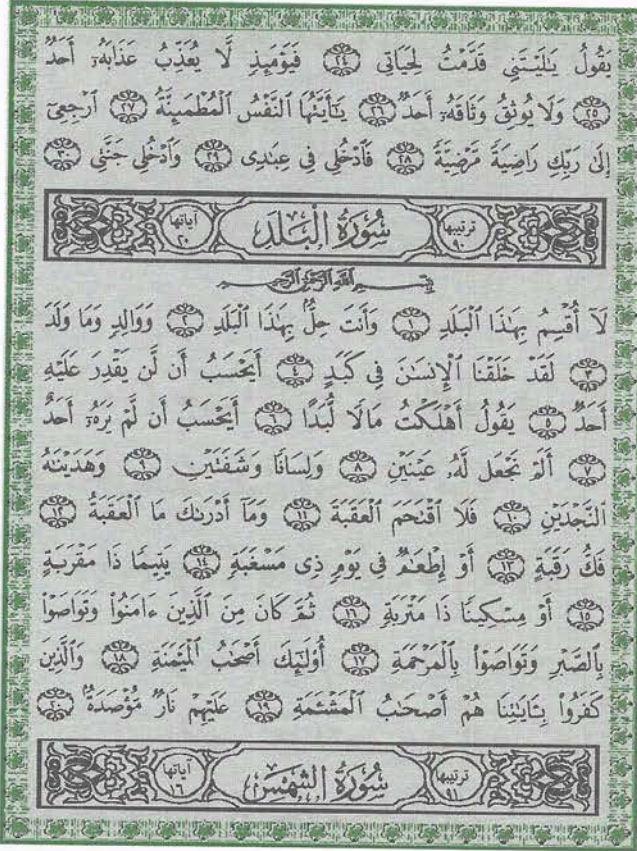 يَقُولُ يَٰلَيْتَنِى قَدَّمْتُ لِحَيَاتِى ٢٤ فَيَوْمَئِذٍ لَّا يُعَذِّبُ عَذَابَهُۥٓ أَحَدٌ
٢٥ وَلَا يُوثِقُ وَثَاقَهُۥٓ أَحَدٌ ٢٦ يَٰٓأَيَّتُهَا ٱلنَّفْسُ ٱلْمُطْمَئِنَّةُ ٢٧ ٱرْجِعِىٓ
إِلَىٰ رَبِّكِ رَاضِيَةً مَّرْضِيَّةً ٢٨ فَٱدْخُلِى فِى عِبَٰدِى ٢٩ وَٱدْخُلِى جَنَّتِى ٣٠
ترتيبها ٩٠ سُورَةُ الْبَلَدِ آياتها ٢٠
بِسْمِ اللَّهِ الرَّحْمَٰنِ الرَّحِيمِ
لَآ أُقْسِمُ بِهَٰذَا ٱلْبَلَدِ ١ وَأَنتَ حِلٌّۢ بِهَٰذَا ٱلْبَلَدِ ٢ وَوَالِدٍ وَمَا وَلَدَ
٣ لَقَدْ خَلَقْنَا ٱلْإِنسَٰنَ فِى كَبَدٍ ٤ أَيَحْسَبُ أَن لَّن يَقْدِرَ عَلَيْهِ
أَحَدٌ ٥ يَقُولُ أَهْلَكْتُ مَالًا لُّبَدًا ٦ أَيَحْسَبُ أَن لَّمْ يَرَهُۥٓ أَحَدٌ
٧ أَلَمْ نَجْعَل لَّهُۥ عَيْنَيْنِ ٨ وَلِسَانًا وَشَفَتَيْنِ ٩ وَهَدَيْنَٰهُ
ٱلنَّجْدَيْنِ ١٠ فَلَا ٱقْتَحَمَ ٱلْعَقَبَةَ ١١ وَمَآ أَدْرَىٰكَ مَا ٱلْعَقَبَةُ ١٢
فَكُّ رَقَبَةٍ ١٣ أَوْ إِطْعَٰمٌ فِى يَوْمٍ ذِى مَسْغَبَةٍ ١٤ يَتِيمًا ذَا مَقْرَبَةٍ
١٥ أَوْ مِسْكِينًا ذَا مَتْرَبَةٍ ١٦ ثُمَّ كَانَ مِنَ ٱلَّذِينَ ءَامَنُوا۟ وَتَوَاصَوْا۟
بِٱلصَّبْرِ وَتَوَاصَوْا۟ بِٱلْمَرْحَمَةِ ١٧ أُو۟لَٰٓئِكَ أَصْحَٰبُ ٱلْمَيْمَنَةِ ١٨ وَٱلَّذِينَ
كَفَرُوا۟ بِـَٔايَٰتِنَا هُمْ أَصْحَٰبُ ٱلْمَشْـَٔمَةِ ١٩ عَلَيْهِمْ نَارٌ مُّؤْصَدَةٌۢ ٢٠
ترتيبها ٩١ سُورَةُ الشَّمْسِ آياتها ١٦